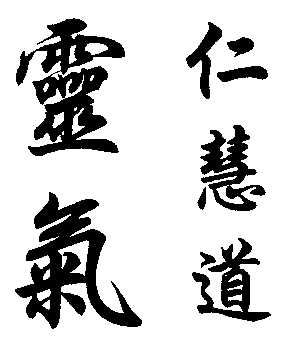 仁慧道
靈氣